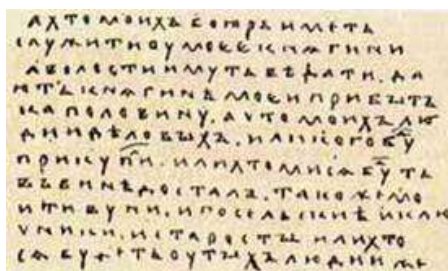 А ХТО МОИХЪ БОꙖРЪ ИМЕТЬ
СЛУЖИТИ ОУ МОЕЕ КНѦГИНИ
А ВОЛОСТИ ИМУТЬ ВѢДАТИ. ДА
ЮТЬ КНѦГИНѢ МОЕИ ПРИБЫТЪ
КА ПОЛОВИНУ. А ЧТО МОИХЪ ЛЮ
ДИИ ДѢЛОВЫХЪ. ИЛИ КОГО БУ
ПРИКУПИ. ИЛИ ХТО МИ СѦ БУ ТЬ
ВЪ ВИНѢ ДОСТАЛЪ. ТАКОЖЕ МО
И ТИВУНИ. И ПОСЕЛЬСКИѢ И КЛЮ
ЧНИКИ. И СТАРОСТЫ ИЛИ ХТО
СѦ БУДЕТЬ ОУ ТЫХЪ ЛЮДИИ ЖЕ